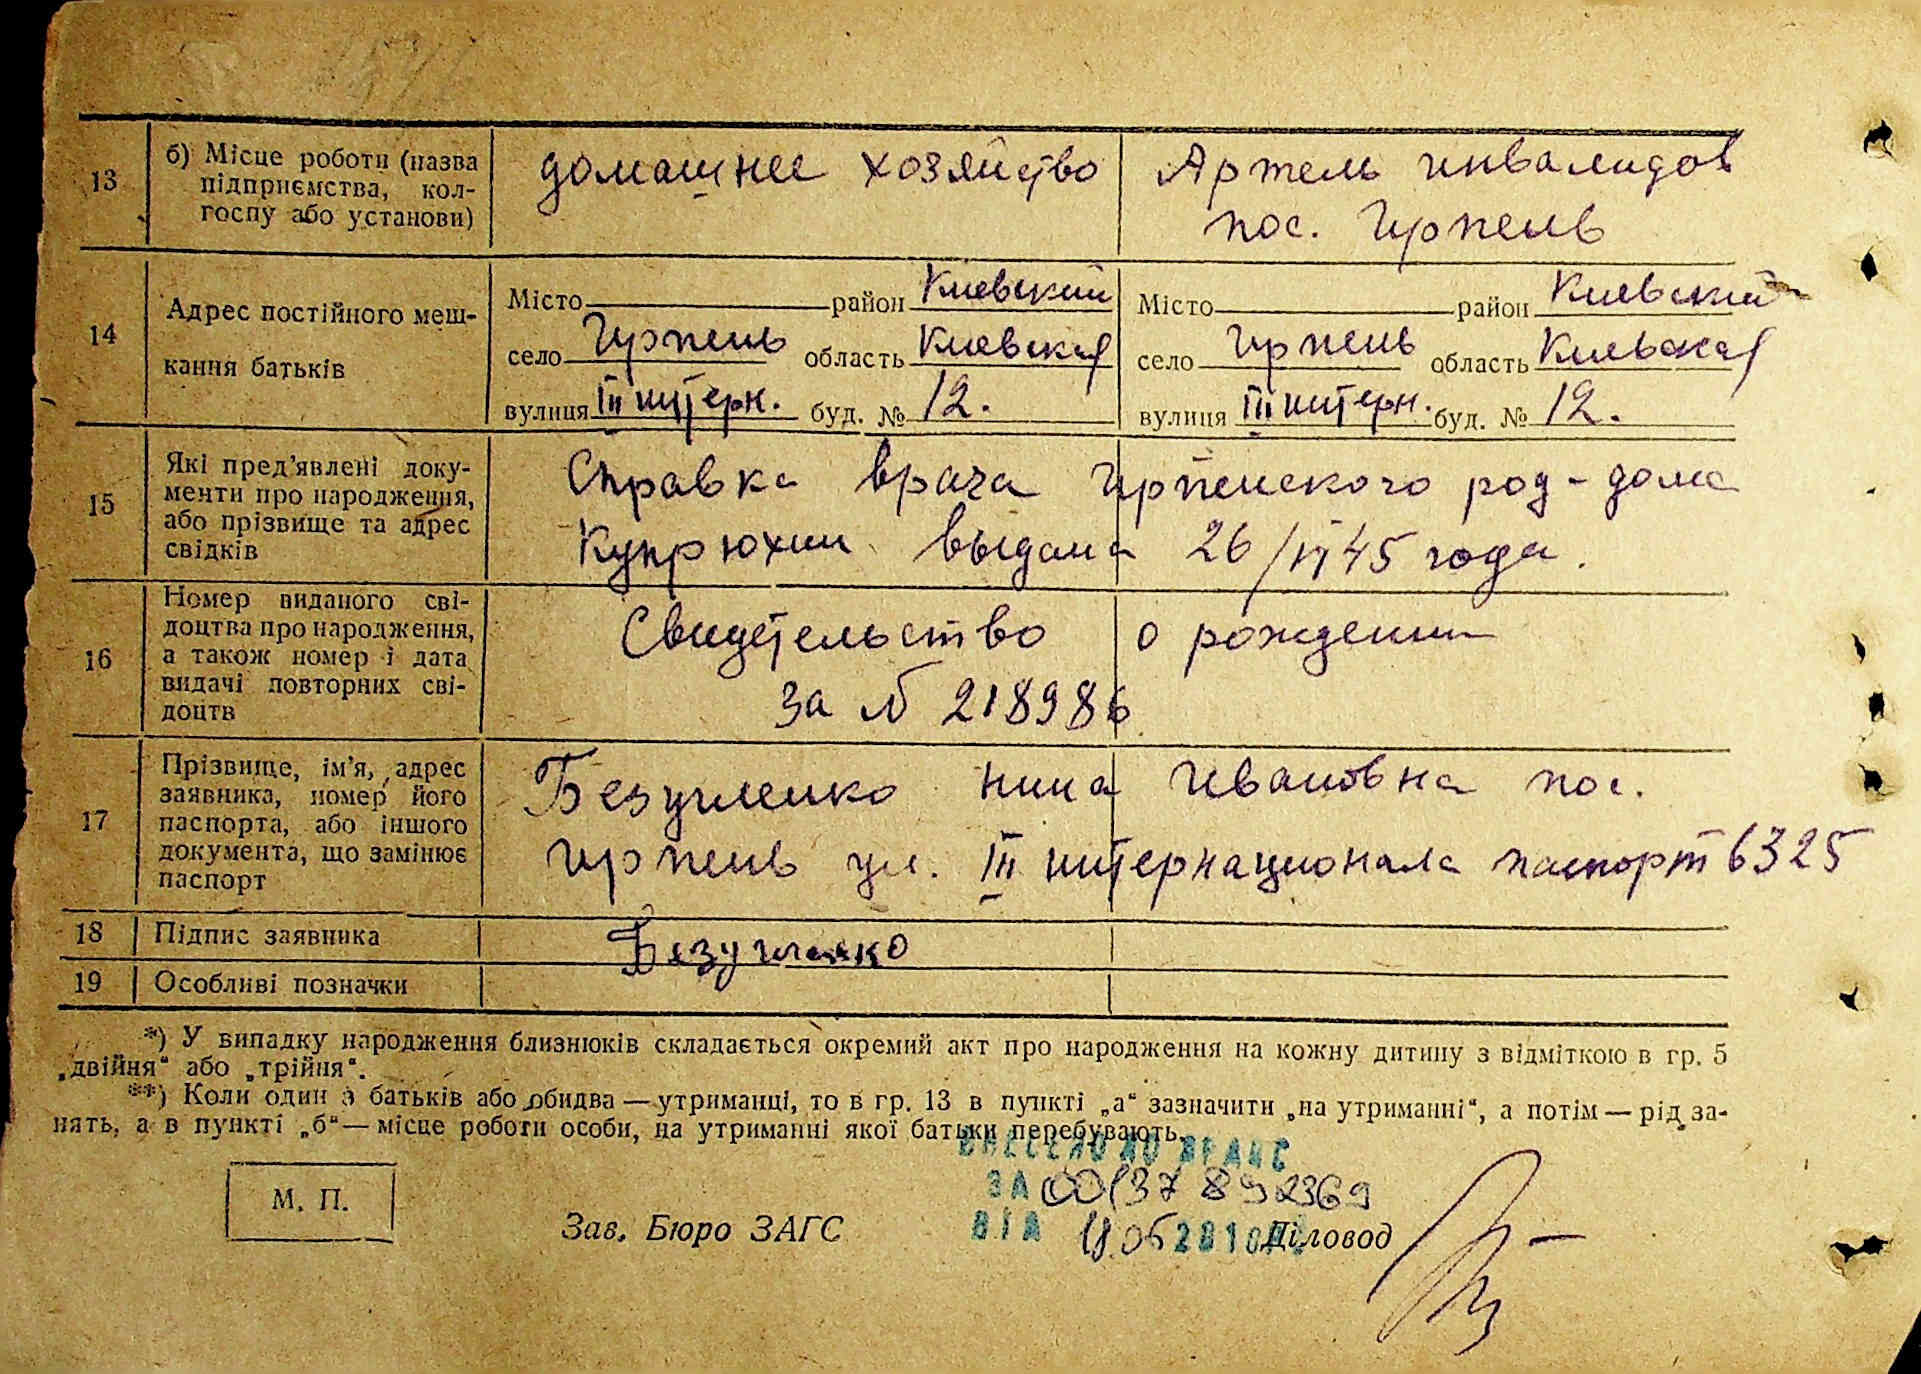 13
б) Місце роботи (назва
підприємства, кол-
госпу або установи)
домашнее хозяйство
Артель инвалидов
пос. Ирпень
14
Адрес постійного меш-
кання батьків
Місто район Киевский
село Ирпень область Киевская
вулиця III интерн. буд. № 12.
Місто район Киевский
село Ирпень область Киевская
вулиця III интерн. буд. № 12.
15
Які пред'явлені доку-
менти про народження,
або прізвище та адрес
свідків
Справка врача Ирпенского род-дома
Купрюхин выдана 26/VI 45 года.
16
Номер виданого сві-
доцтва про народження,
а також номер і дата
видачі повторних сві-
доцтв
Свидетельство о рождении
за № 218986
17
Прізвище, ім'я, адрес
заявника, номер його
паспорта, або іншого
документа, що замінює
паспорт
Нина Ивановна пос.
Ирпень ул. III интернационала паспорт 6325
18
Підпис заявника
19
Особливі позначки
*) У випадку народження близнюків складається окремий акт про народження на кожну дитину з відміткою в гр. 5
„двійня" або „трійня".
**) Коли один з батьків або обидва — утриманці, то в гр. 13 в пункті „а" зазначити „на утриманні", а потім — рід за-
нять, а в пункті „б" — місце роботи особи, на утриманні якої батьки перебувають.
ВНЕСЕНО ДО ДРАЦС
ЗА 00137892369
ВІД
М. П.
Зав. Бюро ЗАГС
Діловод